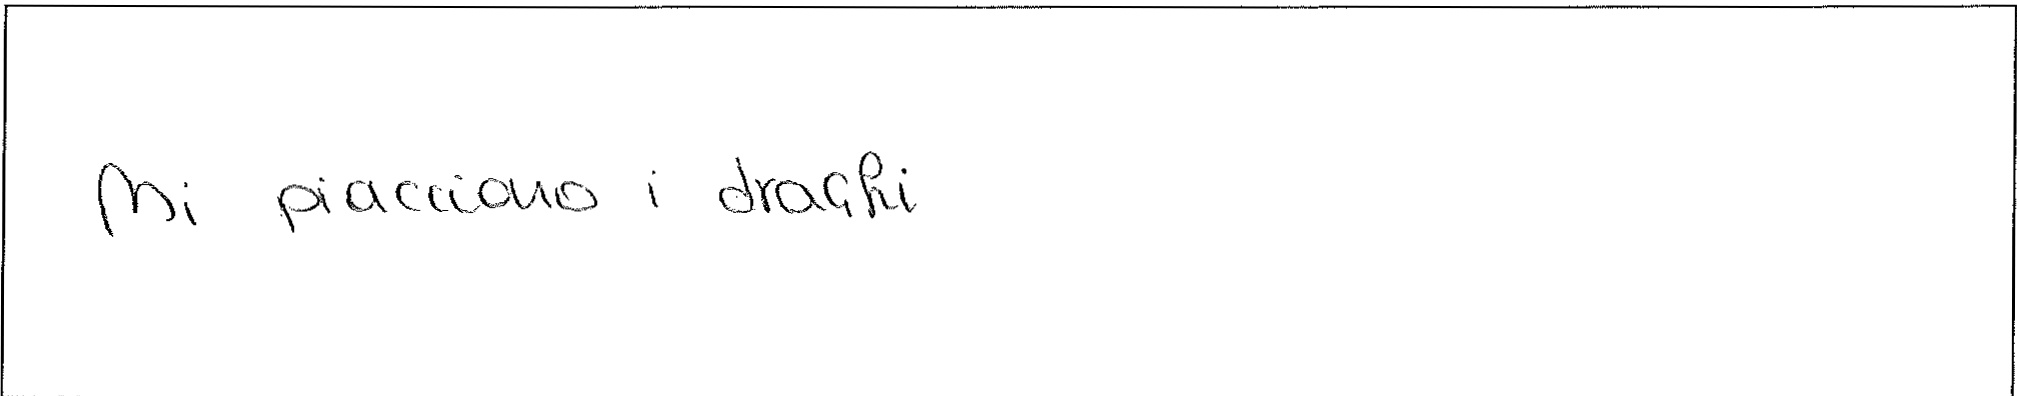 Mi piacciono i draghi